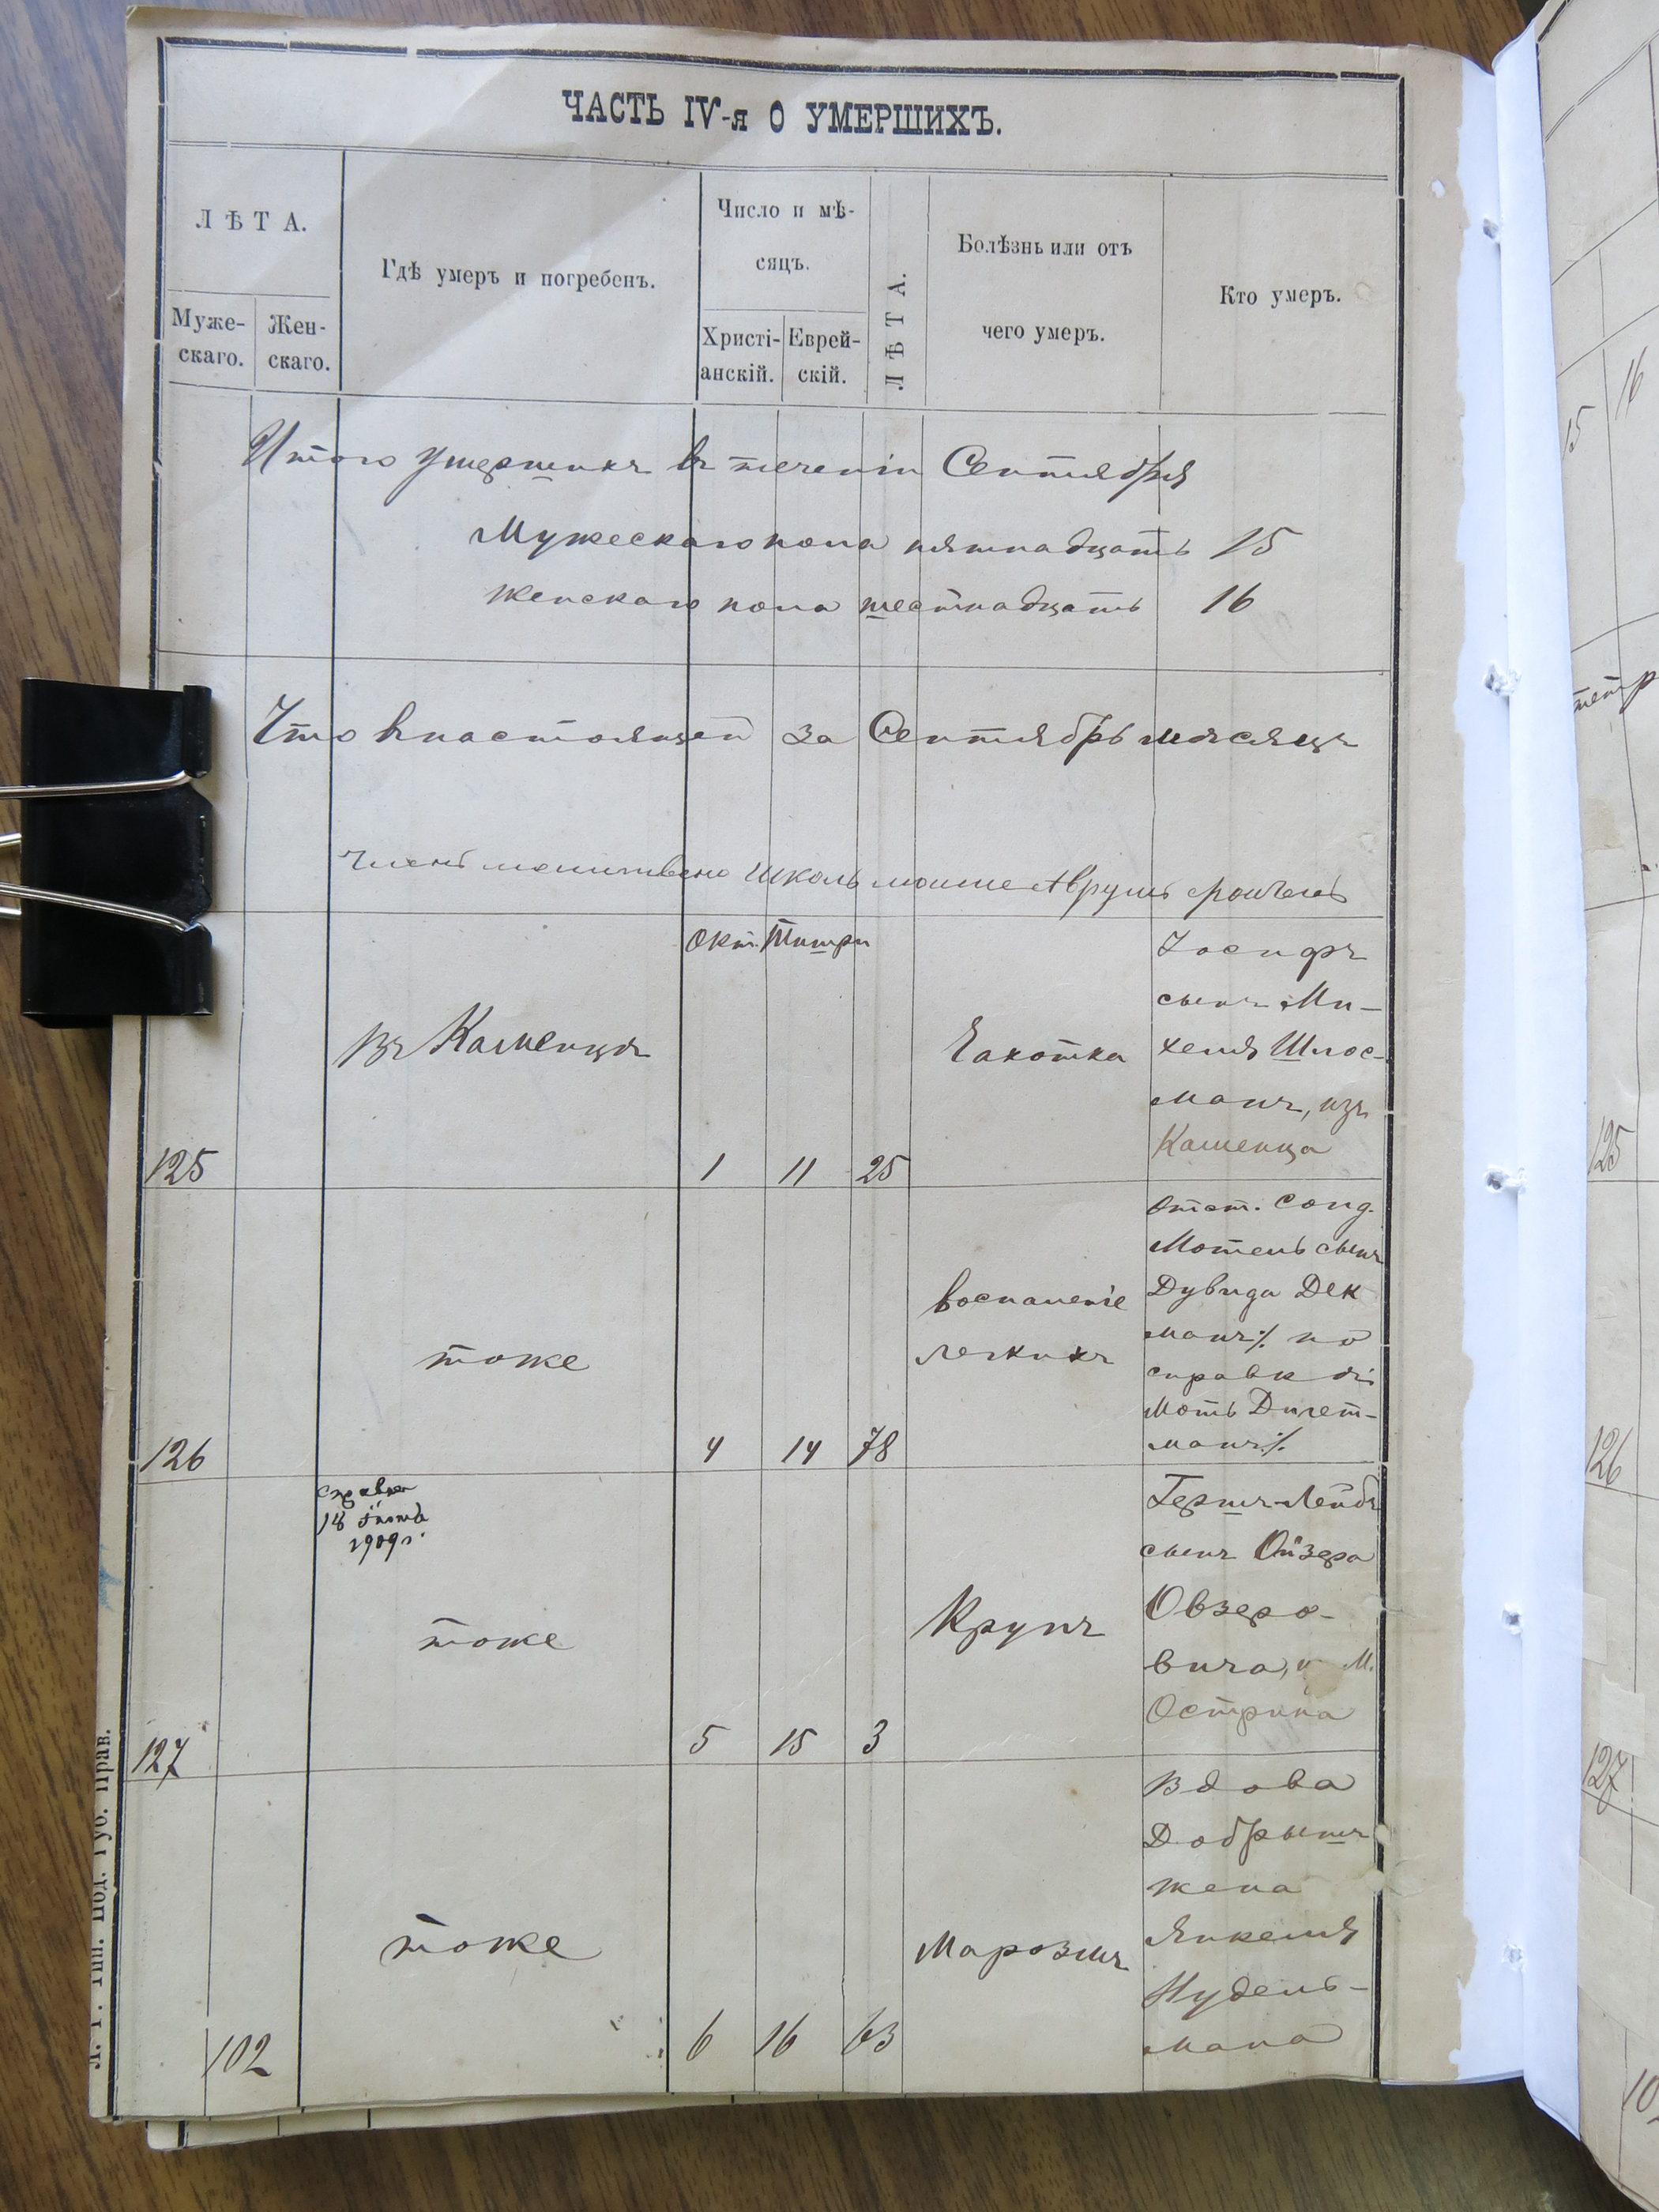 ЧАСТЬ IV-я О УМЕРШИХЪ.
ЛѢТА.
Муже-
скаго.
Жен-
скаго.
Гдѣ умеръ и погребенъ.
Число и мѣ-
сяцъ.
Христі-
анскій.
Еврей-
скій.
ЛѢТА.
Болѣзнь или отъ
чего умеръ.
Кто умеръ.
Итого умершихъ въ теченіи Сентября
Мужескаго пола пятнадцать 15
Женскаго пола шестнадцать 16
Что внастоящей за Сентябрь мѣсяцъ
Школы
Окт. Тишри
125
Въ Каменцѣ
1 11 25
Чахотка
Іосифъ
сынъ Ми-
хеля Шлос-
манъ, изъ
Каменца
126
тоже
4 14 78
воспаленіе
легкихъ
Отст. Солд.
Мотель сынъ
Дувида Дек
манъ ٪ по
справкѣ
Моть Дихт-
манъ ٪
справка
18
1909 г.
127
тоже
5 15 3
Крупъ
Гершъ-Лейбъ
сынъ Ойзера
Овзеро-
вича, М.
Острина
102
тоже
6 16 63
Марозмъ
Вдова
Добрышъ
жена
Янкеля
Нудель-
мана
Л. Г. Тип. Под. Губ. Прав.
15
16
125
126
127